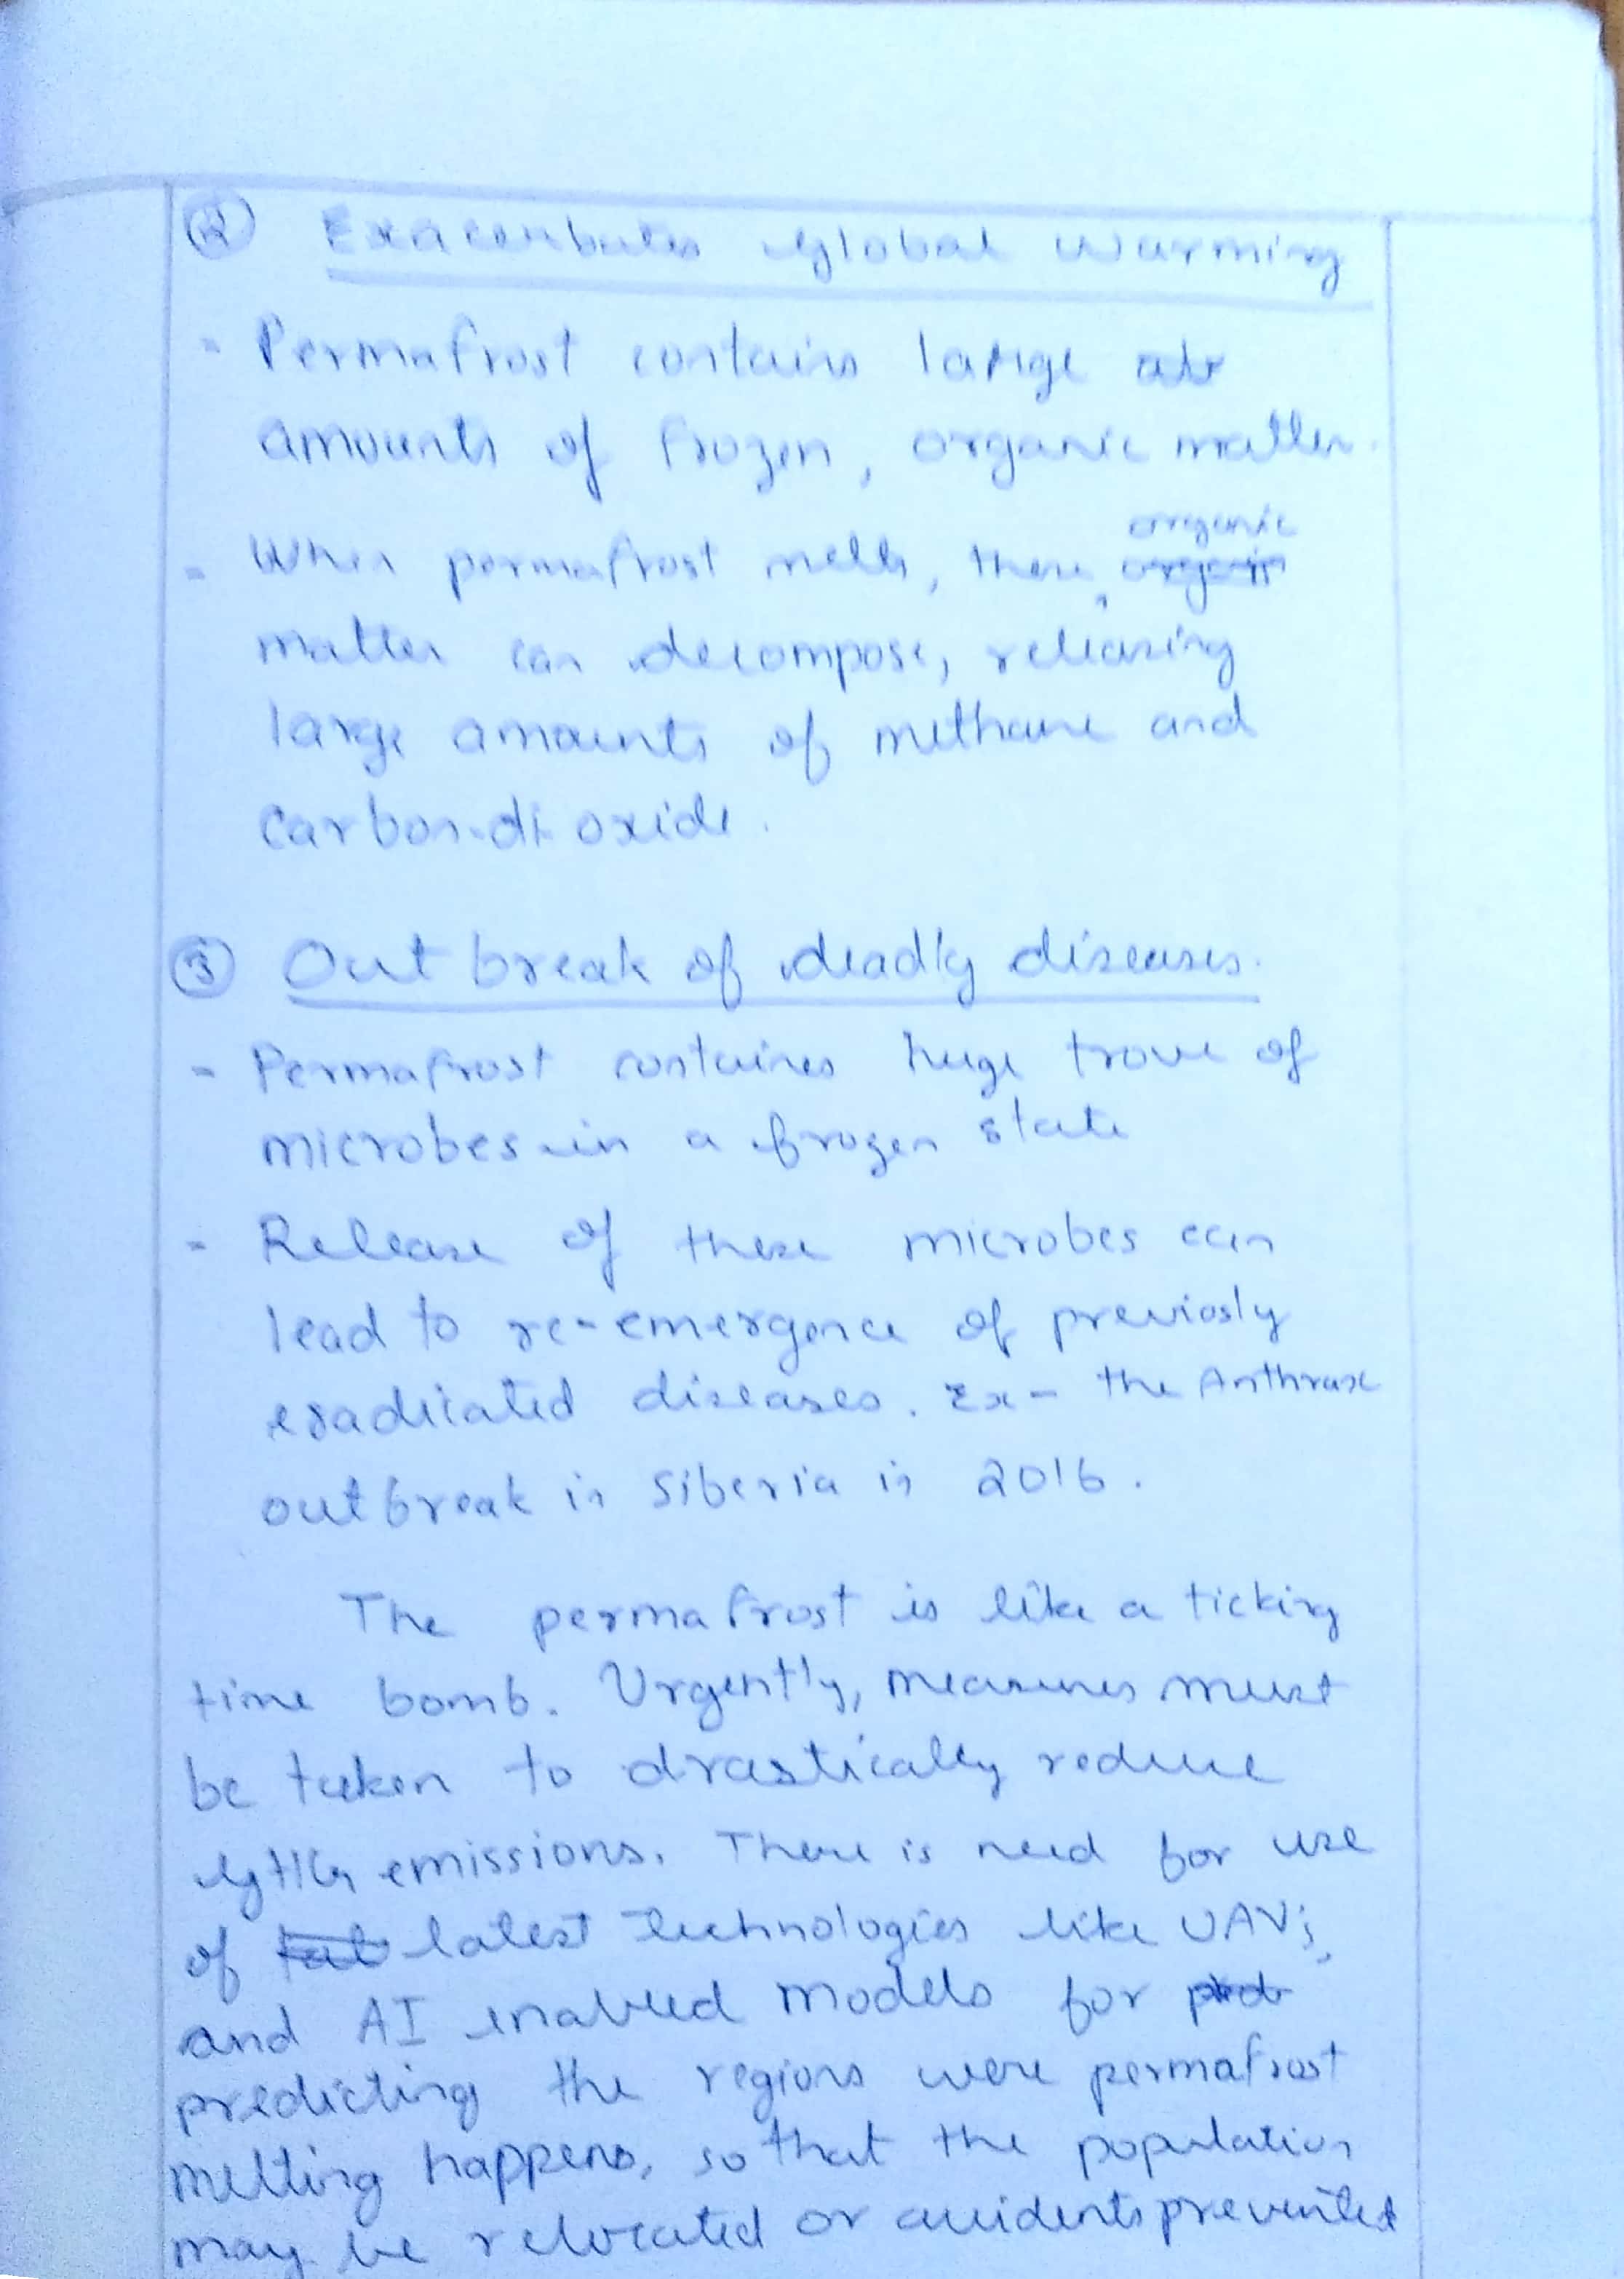 ② Exacerbates Global Warming
- Permafrost contains large
amounts of frozen, organic matter.
organic
- When permafrost melts, these
matter can decompose, releasing
large amounts of methane and
carbon-di-oxide.
③ Outbreak of deadly diseases.
- Permafrost containes huge trove of
microbes in a frozen state
- Release of these microbes can
lead to re-emergence of previosly
eradicated diseases. Ex- the Anthrax
outbreak in Siberia in 2016.
The permafrost is like a ticking
time bomb. Urgently, measures must
be taken to drastically reduce
GHG emissions. There is need for use
of latest technologies like UAV's,
and AI enabled models for
predicting the regions were permafrost
melting happens, so that the population
may be relocated or accidents prevented